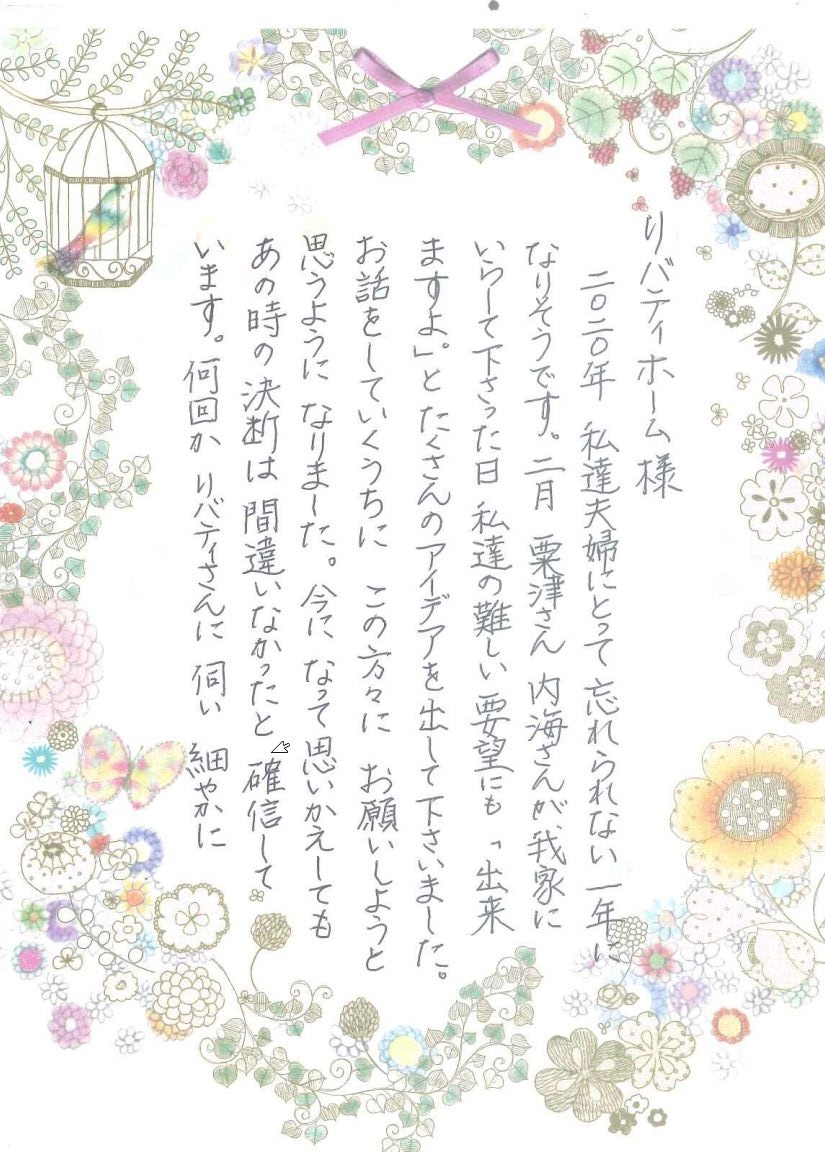 リバティホーム様
二〇二〇年 私達夫婦にとって忘れられない一年に
なりそうです。二月 粟津さん 内海さんが、我家に
いらして下さった日 私達の難しい要望にも「出来
ますよ。」と たくさんのアイデアを出して下さいました。
お話をしていくうちに この方々に お願いしようと
思うように なりました。今に なって思いかえしても
あの時の決断は 間違いなかったと 確信して
います。何回か リバティさんに 伺い 細やかに